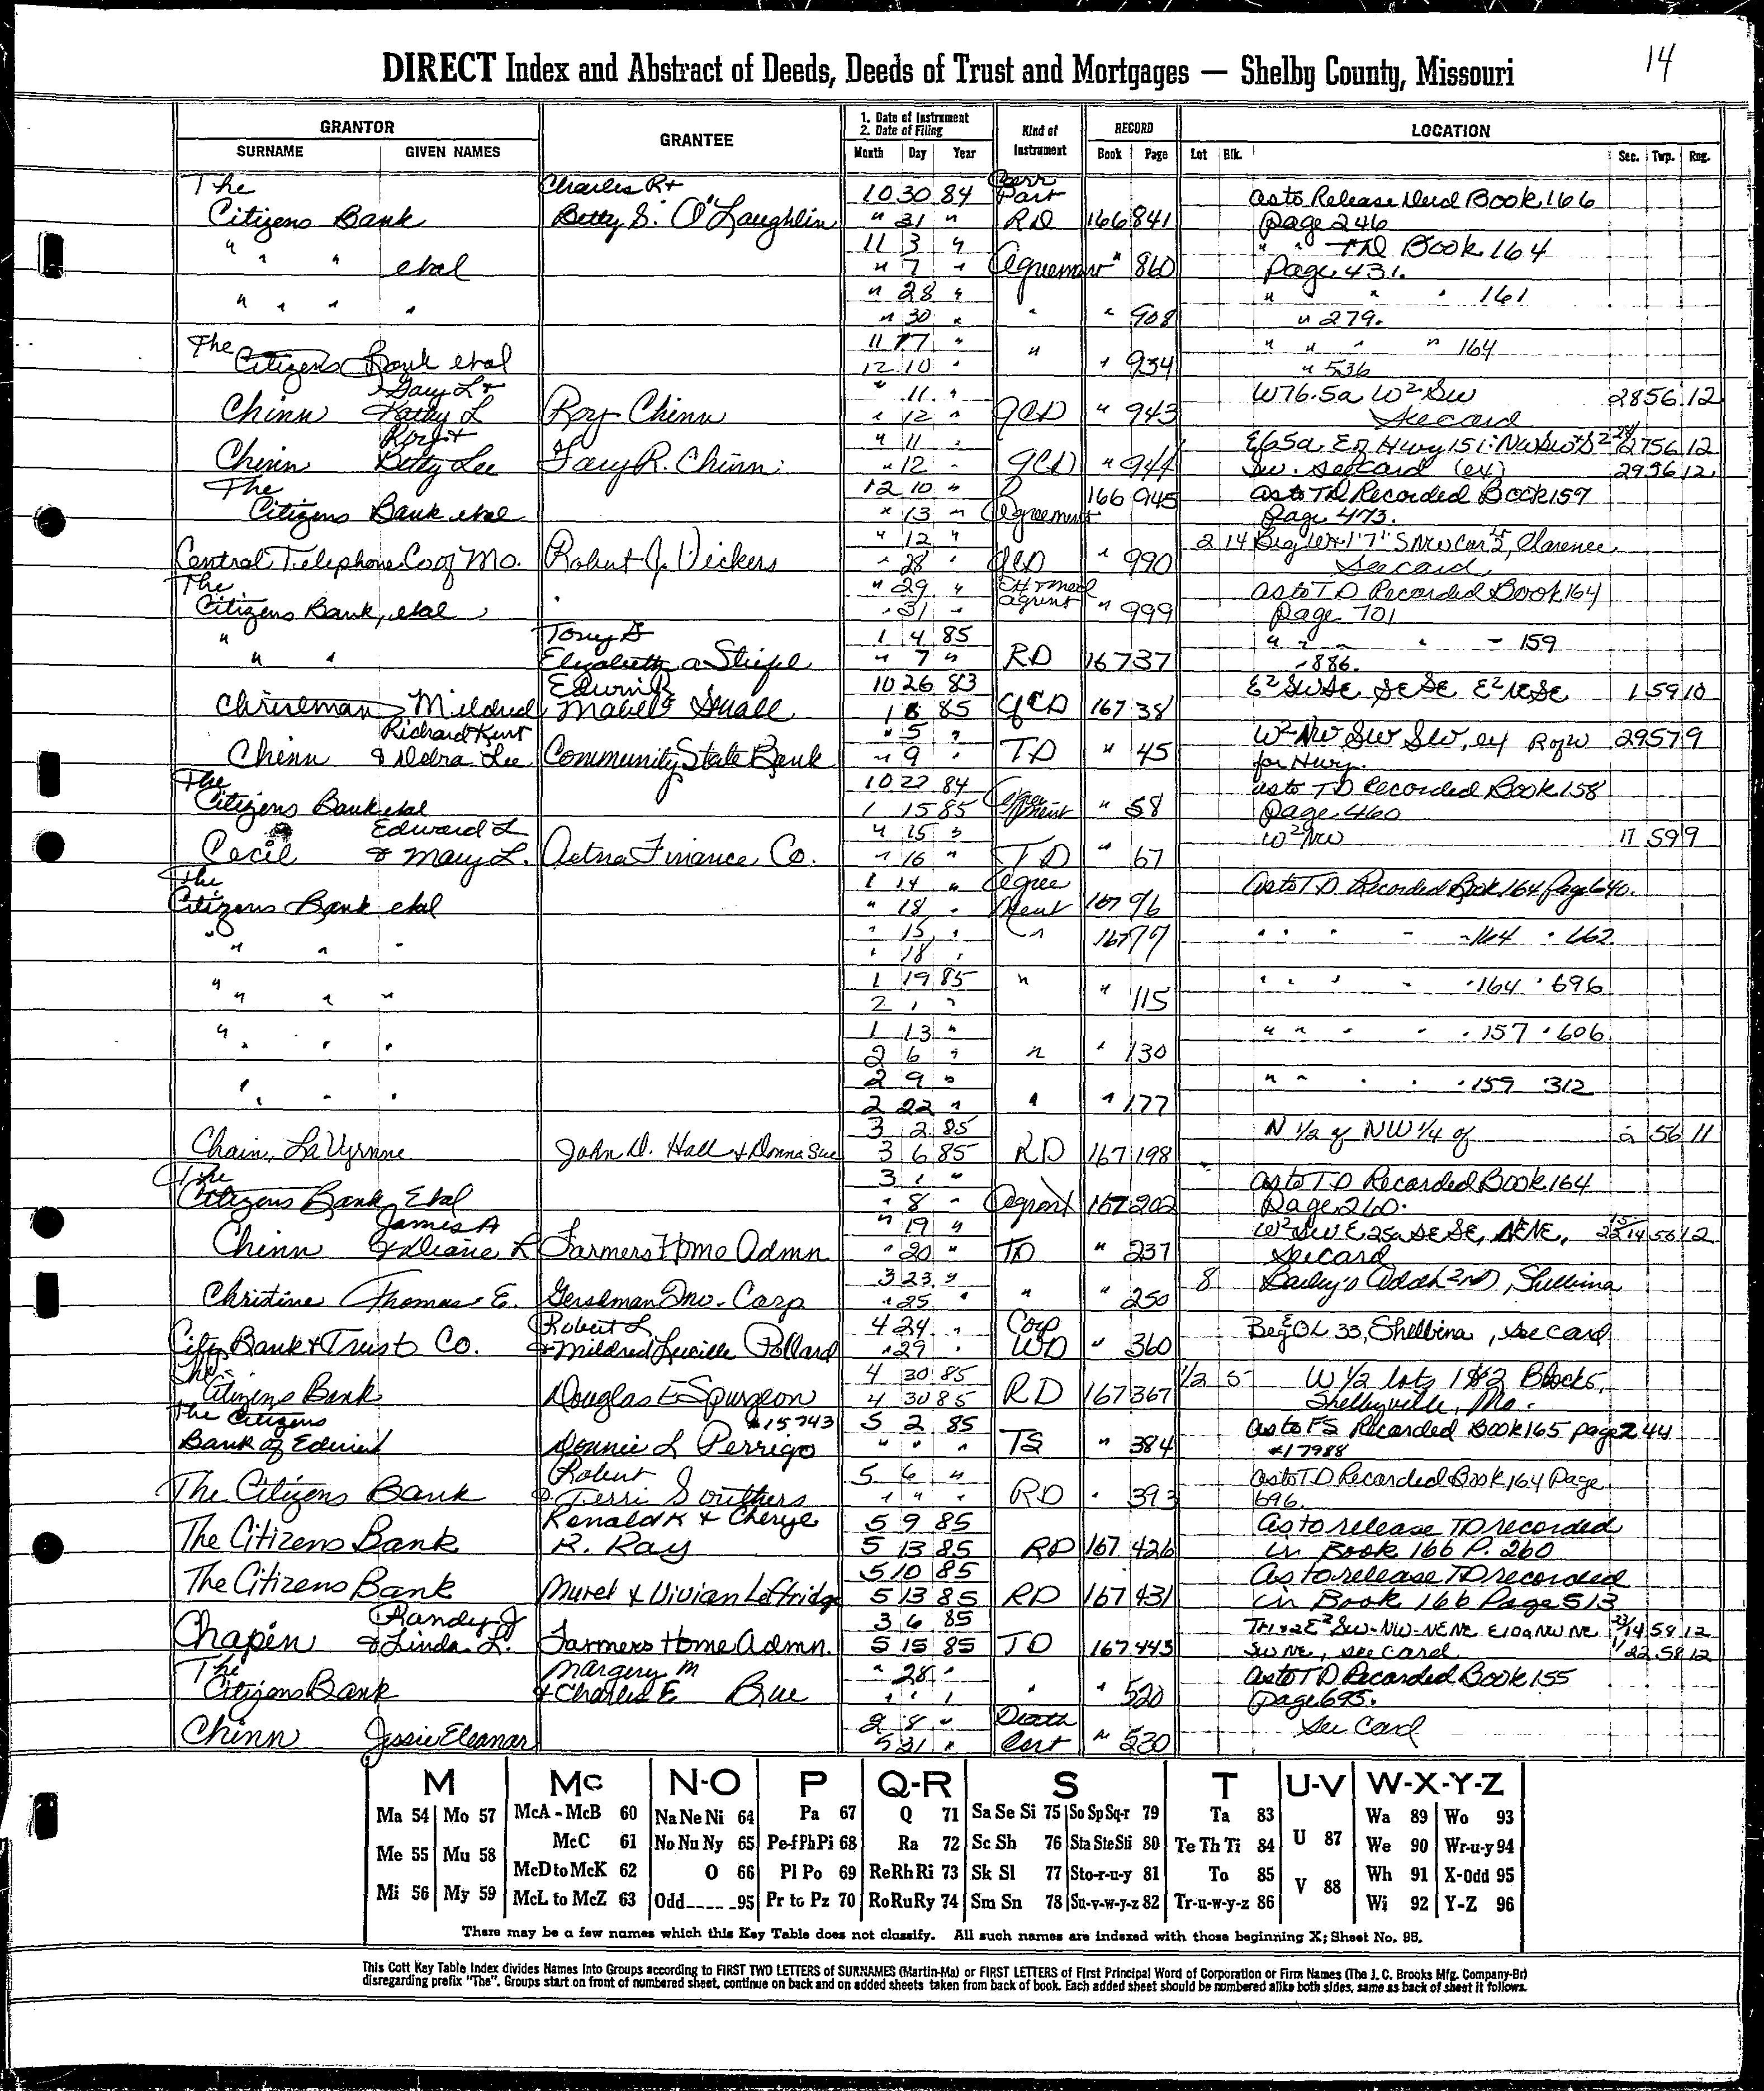 14
DIRECT Index and Abstract of Deeds, Deeds of Trust and Mortgages — Shelby County, Missouri
GRANTOR GRANTEE 1. Date of Instrument 2. Date of Filing Kind of Instrument RECORD LOCATION
SURNAME GIVEN NAMES Month Day Year Book Page Lot Blk. Sec. Twp. Rng.
The Charles R + 10 30 84 Part as to Release Book 166
Citizens Bank Betty S. O'Laughlin " 31 " RD 166 841 page 246
11 3 " " " TD Book 164
" " " etal " 7 " Agreement " 860 Page 431.
" 28 " " " " 161
" " " " " 30 " " " 908 " 279.
The 11 17 " " " " " " 164
Citizens Bank etal 12 10 " " 934 " 536
Gary L + " 11 " W76.5a W2 SW 28 56 12
Chinn Kathy L Roy Chinn " 12 " QCD " 943 See card
Roy + " 11 " E65a E of Hwy 151: NWSW+S2 27 56 12
Chinn Betty Lee Gary R. Chinn " 12 " QCD " 944 SW. See card (ex) 29 56 12
The 12 10 " 166 945 as to TD Recorded Book 159
Citizens Bank etal " 13 " Agreement page 473.
" 12 " 2 14 Clarence
Central Telephone Co of Mo. Robert J. Vickers " 28 " QCD " 990 See card
The " 29 " as to TD Recorded Book 164
Citizens Bank, etal " 31 " " 999 page 701
" Tony G 1 4 85 " " " " " 159
" " Elizabeth A " 7 " RD 167 37 " 886.
Edwin R 10 26 83 E2SWSE SESE E2 1 59 10
Chriseman Mildred Mabel Small 1 8 85 QCD 167 38
Richard Kent " 5 " W2 NW SW SW, ex R of W 29 57 9
Chinn & Debra Lee Community State Bank " 9 " TD " 45 for Hwy.
The 10 22 84 as to TD Recorded Book 158
Citizens Bank etal 1 15 85 Agreement " 58 page 460
Edward L " 15 " W2 NW 17 59 9
Cecil & Mary L. Aetna Finance Co. " 16 " TD " 67
The 1 14 " Agree as to TD Recorded Book 164 Page 640.
Citizens Bank etal " 18 " ment 167 96
" " " " " 15 " " 167 97 " " " " " 164 " 662
" 18 "
" " " " 1 19 85 " " 115 " " " " " 164 " 696
2 1 "
" " " " 1 13 " " " " " " 157 " 606
2 6 " " " 130
2 9 " " " " " " 159 " 312
" " " 2 22 " " " 177
3 2 85 N 1/2 of NW 1/4 of 2 56 11
Chain, LaVyrnne John D. Hall + Donna Sue 3 6 85 RD 167 198
The 3 1 " as to TD Recorded Book 164
Citizens Bank Etal " 8 " 167 202 Page 260.
James A " 19 " W2SW E25a SESE, NENE, 56 12
Chinn & Diane L Farmers Home Admn. " 20 " TD " 237 See card
3 23 " 8 Bailey's Add (2nd), Shelbina
Christine Thomas E. Gershman Inv. Corp " 25 " " " 250
Robert L. 4 24 " Corp Beg OL 33, Shelbina, see card
City Bank & Trust Co. & Mildred Lucille Pollard " 29 " WD " 360
The 4 30 85 1/2 5 W 1/2 lots 1 & 2 Block 5,
Citizens Bank Douglas E Spurgeon 4 30 85 RD 167 367 Shelbyville, Mo.
The Citizens #15743 5 2 85 as to FS Recorded Book 165 page 244
Bank of Edina Donnie L Perrigo " " " TS " 384 #17988
Robert 5 6 " as to TD Recorded Book 164 Page
The Citizens Bank & Terri Southers " " " RD " 393 696.
Ronald K & Cheryl 5 9 85 As to release TD recorded
The Citizens Bank R. Ray 5 13 85 RD 167 426 in Book 166 P. 260
5 10 85 As to release TD recorded
The Citizens Bank Murel & Vivian Leftridge 5 13 85 RD 167 431 in Book 166 Page 513
Randy J 3 6 85 E2 SW-NW-NENE E10a NW NE 14 58 12
Chapin & Linda L. Farmers Home Admn. 5 15 85 TD 167 443 SWNE, see card 22 58 12
The Margery M " 28 " as to TD Recorded Book 155
Citizens Bank & Charles E Bue " " " " " 520 page 695.
2 8 " Death See Card
Chinn Jessie Eleanor 5 31 " Cert " 530
M Mc N-O P Q-R S T U-V W-X-Y-Z
Ma 54 Mo 57 McA - McB 60 Na Ne Ni 64 Pa 67 Q 71 Sa Se Si 75 So Sp Sq-r 79 Ta 83 Wa 89 Wo 93
Me 55 Mu 58 McC 61 No Nu Ny 65 Pe-f Ph Pi 68 Ra 72 Sc Sh 76 Sta Ste Sti 80 Te Th Ti 84 U 87 We 90 Wr-u-y 94
McD to McK 62 O 66 Pl Po 69 Re Rh Ri 73 Sk Sl 77 Sto-r-u-y 81 To 85 V 88 Wh 91 X-Odd 95
Mi 56 My 59 McL to McZ 63 Odd 95 Pr to Pz 70 Ro Ru Ry 74 Sm Sn 78 Su-v-w-y-z 82 Tr-u-w-y-z 86 Wi 92 Y-Z 96
There may be a few names which this Key Table does not classify. All such names are indexed with those beginning X; Sheet No. 95.
This Cott Key Table Index divides Names into Groups according to FIRST TWO LETTERS of SURNAMES (Martin-Ma) or FIRST LETTERS of First Principal Word of Corporation or Firm Names (The J. C. Brooks Mfg. Company-Br)
disregarding prefix "The". Groups start on front of numbered sheet, continue on back and on added sheets taken from back of book. Each added sheet should be numbered alike both sides, same as back of sheet it follows.